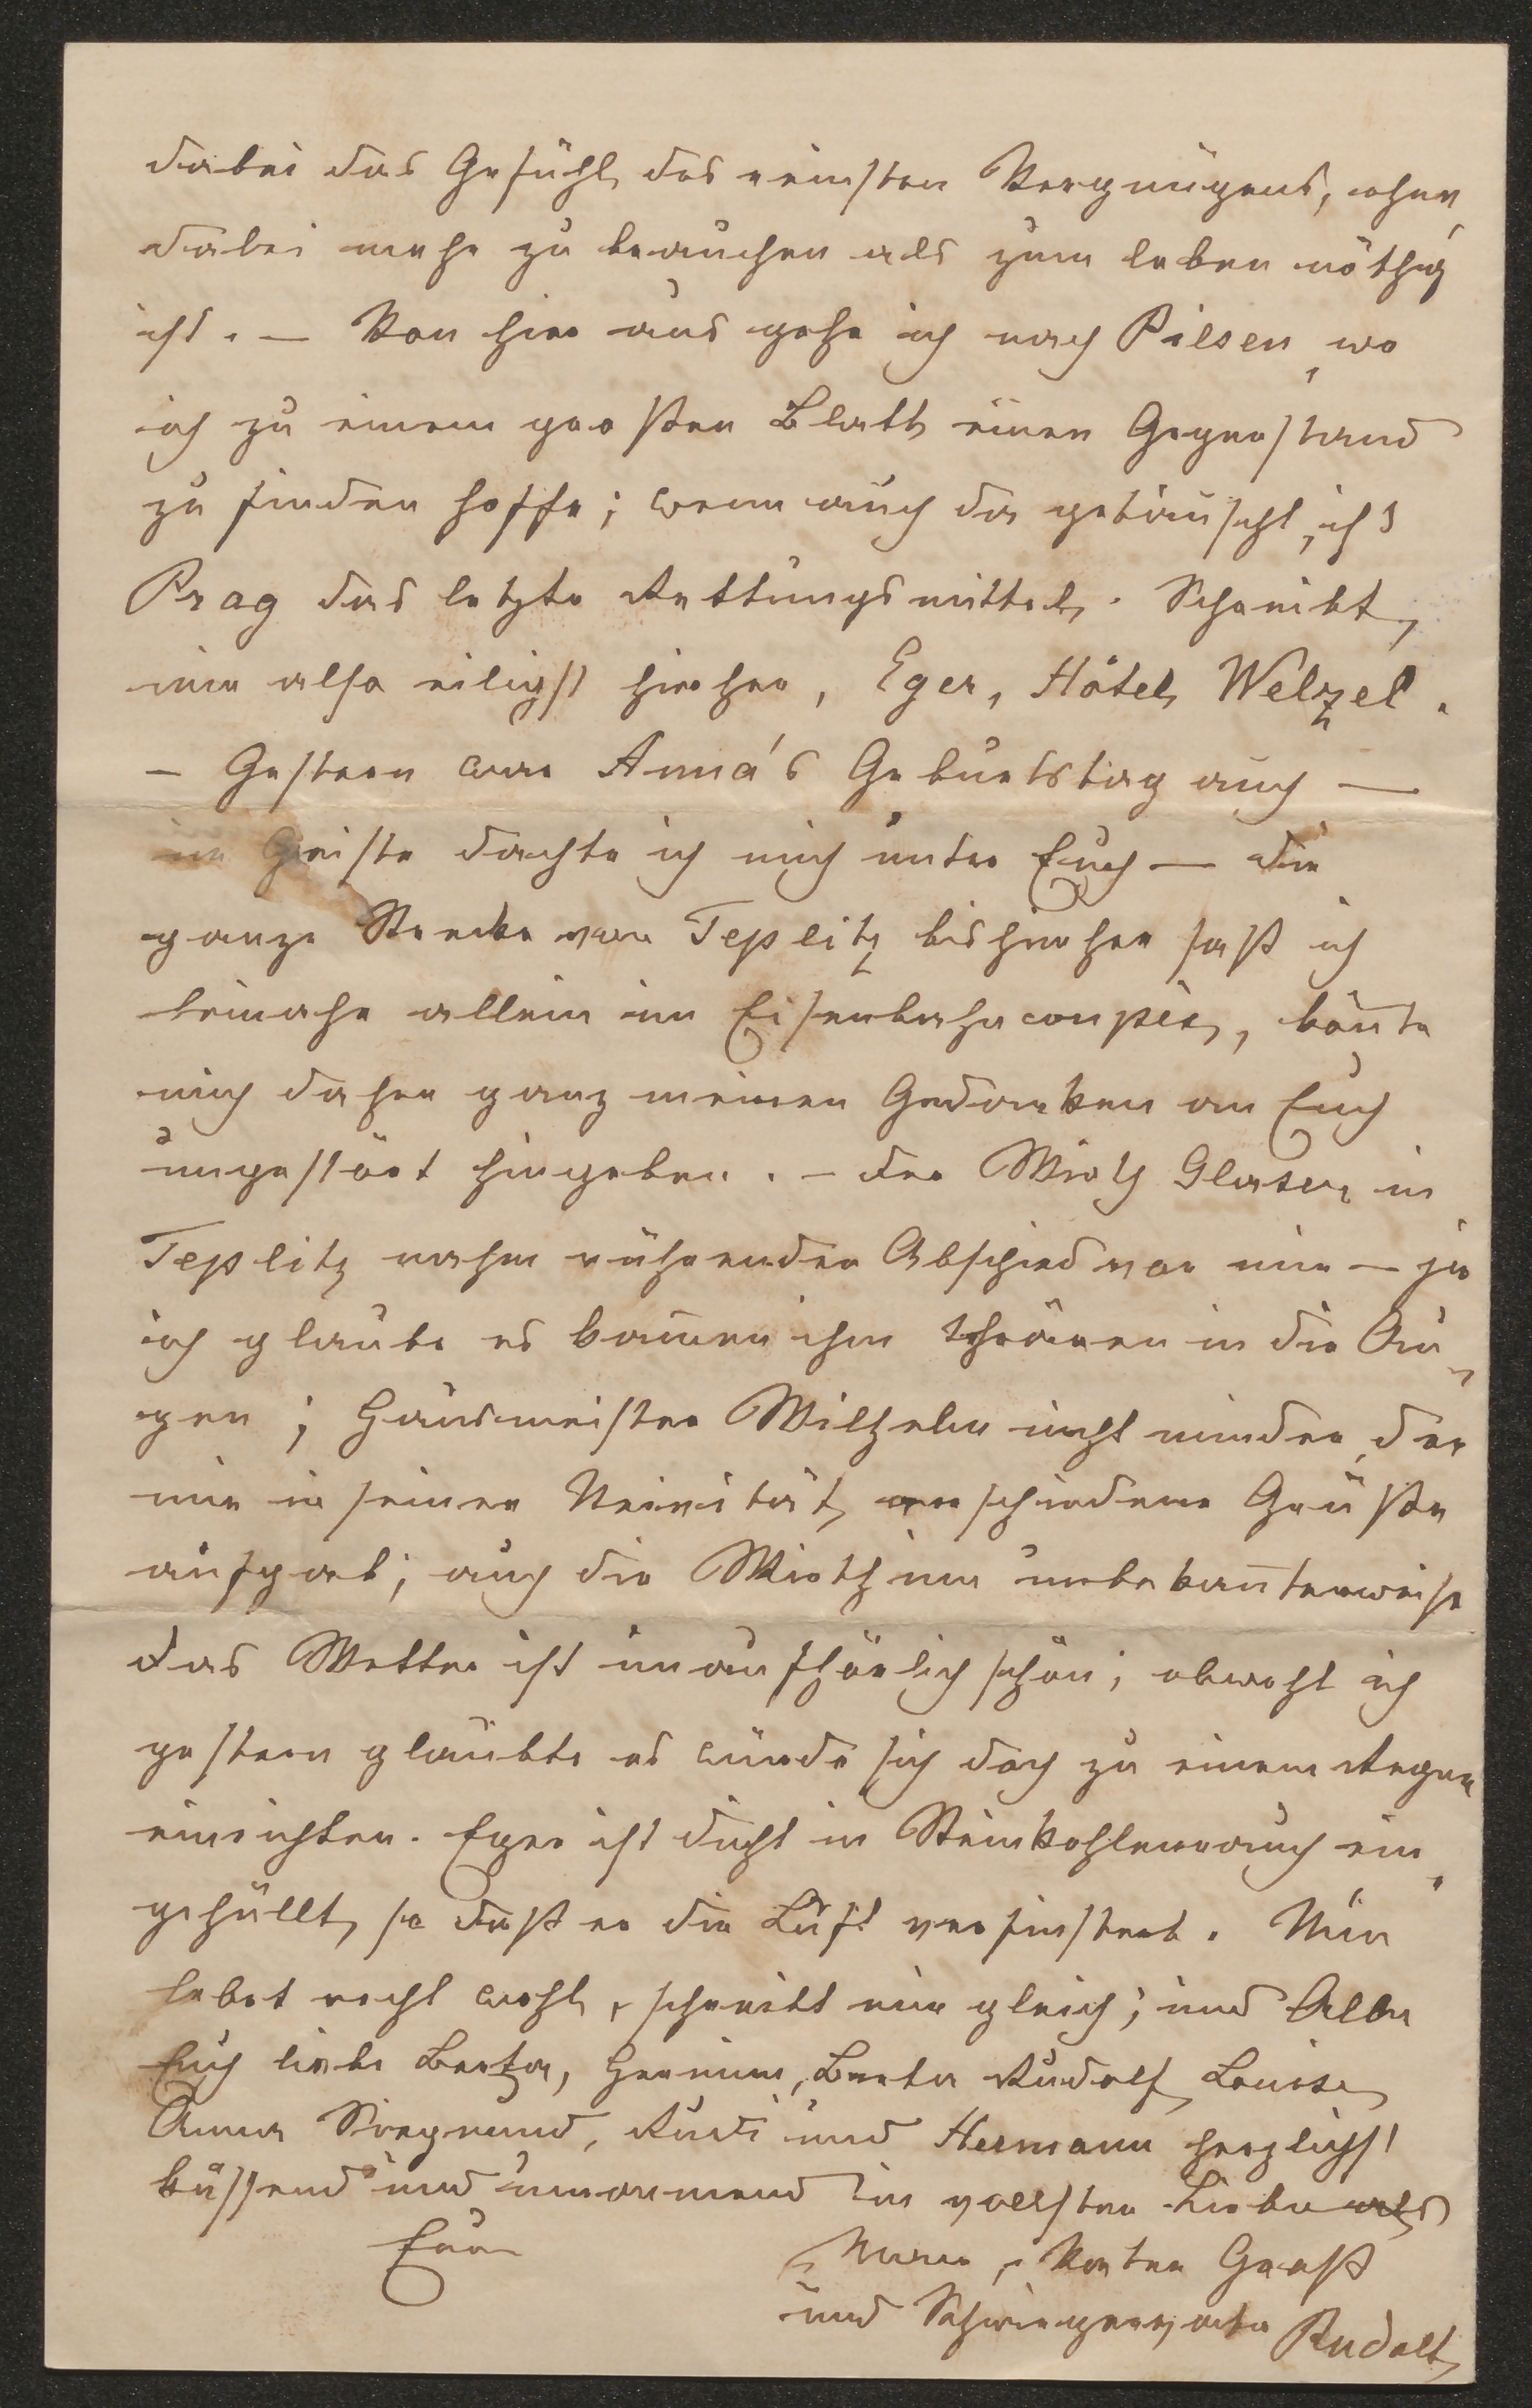 dabei das Gefühl des reinsten Vergnügens, ohne
dabei mehr zu brauchen als zum leben nöthig
ist. — Von hier aus gehe ich nach Pilsen, wo
ich zu einem großen Blatt einen Gegenstand
zu finden hoffe; wenn auch da getäuscht, ist
Prag das letzte Rettungsmittel. Schreibt
mir also eiligst hierher, Eger, Hôtel Welzel.
— Gestern war Anna's Geburtstag auch —
im Geiste dachte ich mich unter Euch — die
ganze Strecke von Teplitz bis hierher saß ich
beinahe allein im Eisenbahncoupée, koñte
mich daher ganz meinen Gedanken an Euch
ungestört hingeben. — Der Wirth Glaser in
Teplitz nahm rührenden Abschied von mir — ja
ich glaube es kamen ihm thränen in die Au-
gen; Hausmeister Wilhelm nicht minder, der
mir in seiner Neivität verschiedene Grüße
aufgab; auch die Wirthin unbekañterweise
Das Wetter ist unaufhörlich schön; obwohl ich
gestern glaubte es würde sich doch zu einem Regen
einrichten. Eger ist dicht in Steinkohlenrauch ein-
gehüllt, so daß er die Luft verfinstert. Nun
lebet recht wohl, schreibt mir gleich; und Alle
Euch liebe Bertha, Hermine, Berta Rudolf, Louise,
Anna Siegmund, Rudi und Hermann herzlichst
küssend und umarmend in vollster Liebe als
Euer
Mann, Vater Groß
und Schwiegervater Rudolf